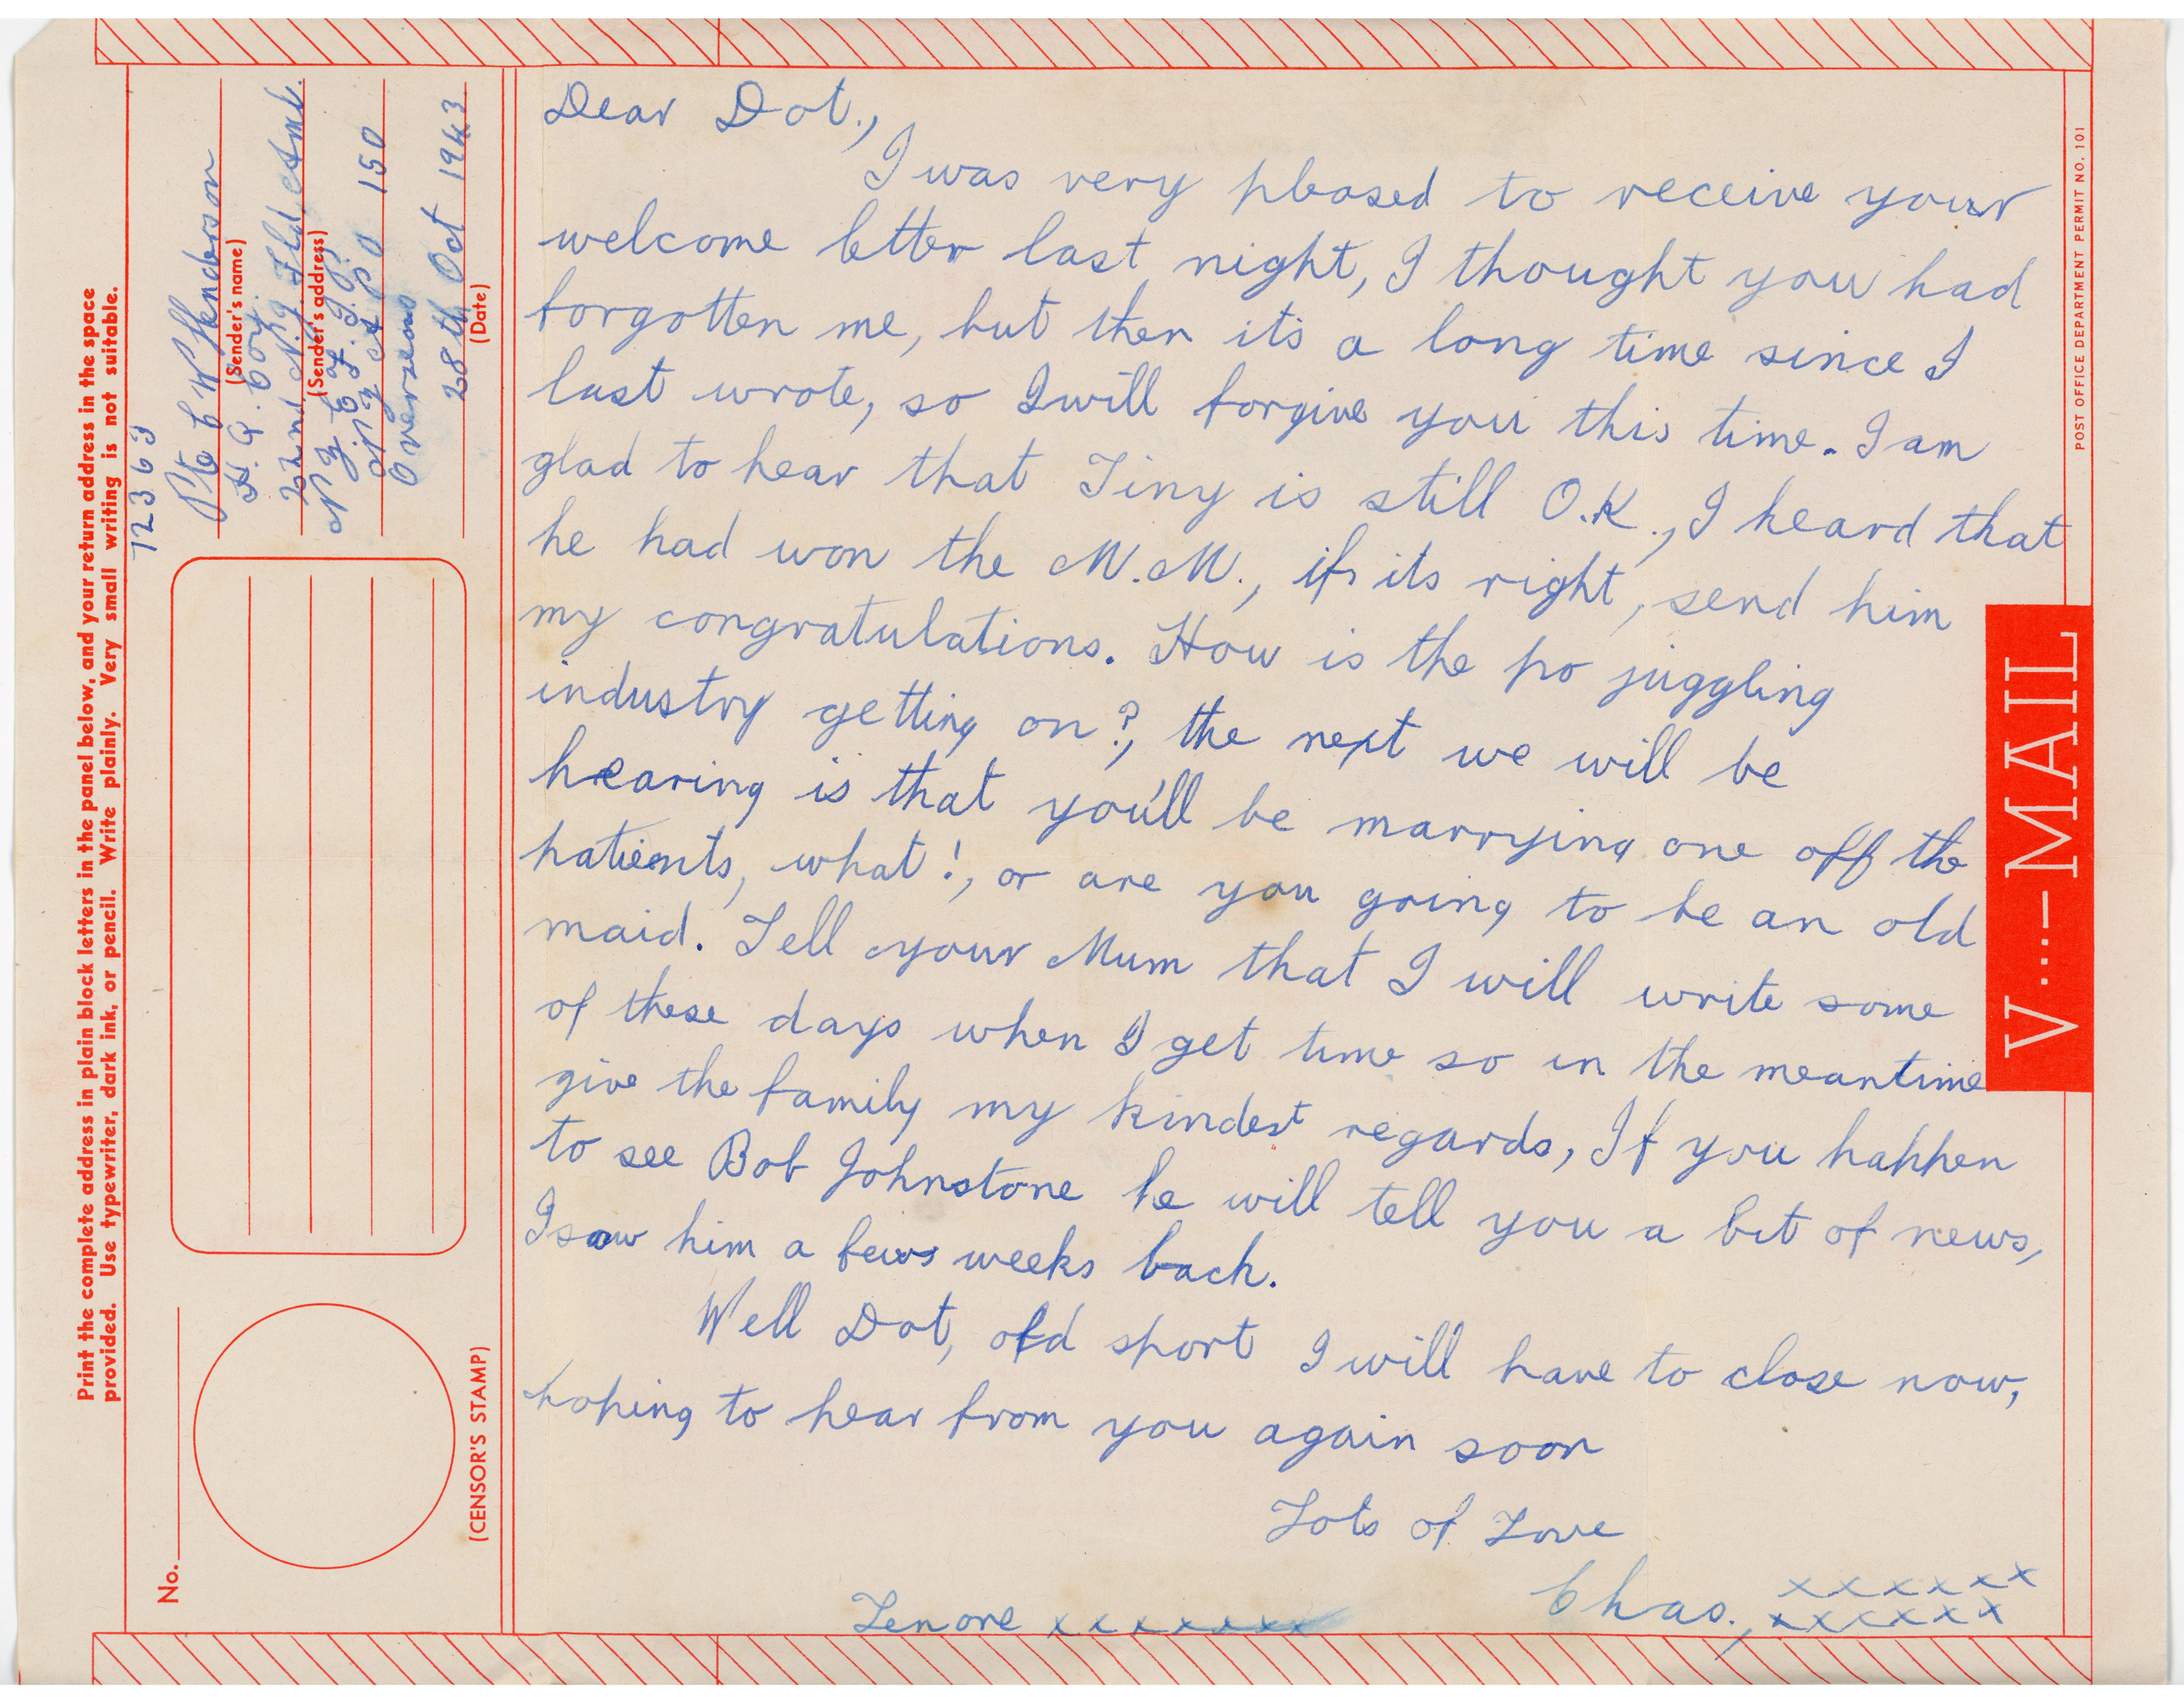 Print the complete address in plain block letters in the panel below, and your return address in the space
provided. Use typewriter, dark ink, or pencil. Write plainly. Very small writing is not suitable.
No.
(CENSOR'S STAMP)
72363
Pte C W Henderson
(Sender's name)
H.Q. Coy.
22nd N.Z. Fld. Amb.
(Sender's address)
N Z E F. I.P.
N Z A P O 150
Overseas
28th Oct 1943
(Date)
Dear Dot.,
I was very pleased to receive your
welcome letter last night, I thought you had
forgotten me, but then its a long time since I
last wrote, so I will forgive you this time. I am
glad to hear that Tiny is still O.K., I heard that
he had won the M.M., if its right, send him
my congratulations. How is the po juggling
industry getting on?, the next we will be
hearing is that you'll be marrying one off the
patients, what!, or are you going to be an old
maid. Tell your Mum that I will write some
of these days when I get time so in the meantime
give the family my kindest regards, If you happen
to see Bob Johnstone he will tell you a bit of news,
I saw him a few weeks back.
Well Dot, old sport I will have to close now,
hoping to hear from you again soon
Lots of Love
Chas., xxxxxx
xxxxxx
Lenore xxxxxxx
V...-MAIL
POST OFFICE DEPARTMENT PERMIT NO. 101